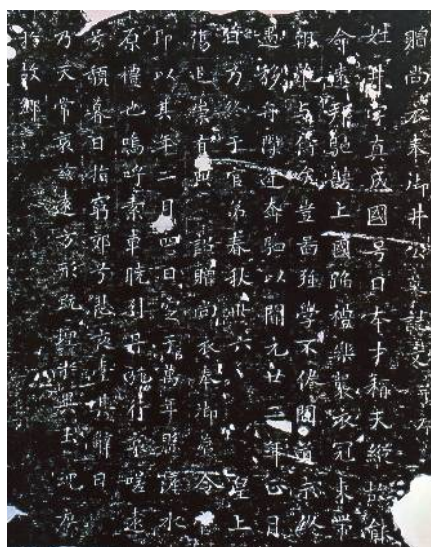 贈尚衣奉御井公墓誌文并序
姓井字真成國号日本才稱天縱故能
命遠邦馳騁上國蹈禮樂襲衣冠束帶
朝難与儔矣豈圖強學不倦聞道未終
遇移舟隙逢奔駟以開元廿二年正月
乃終于官第春秋卅六 皇上
傷追崇有典 詔贈尚衣奉御葬令
即以其年二月四日窆于萬年縣滻水
原禮也嗚呼素車曉引丹旐行哀嗟遠
兮頹暮日指窮郊兮悲夜臺其辭曰
乃天常哀茲遠方形既埋於異土魂庶
於故鄉